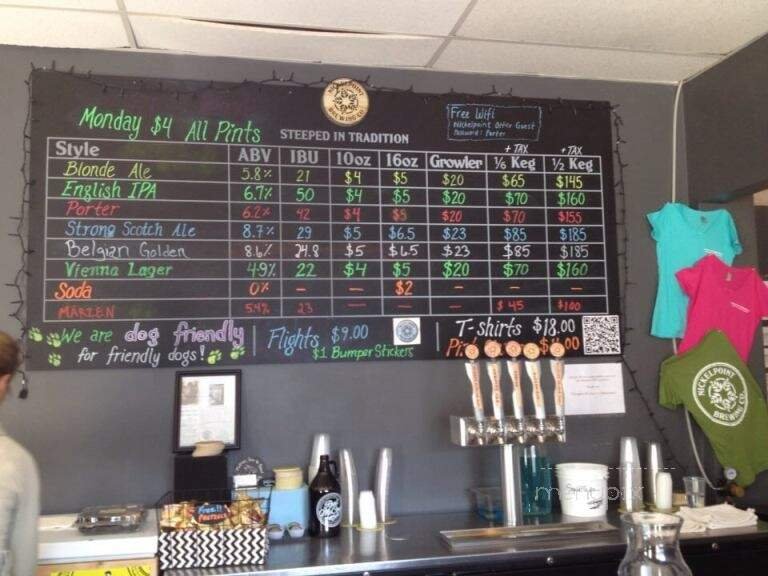 NICKELPOINT BREWING CO.
Monday $4 All Pints
STEEPED IN TRADITION
Free Wifi
Nickelpoint Offer Guest
Password: Porter
+ TAX + TAX
Style ABV IBU 10oz 16oz Growler 1/6 Keg 1/2 Keg
Blonde Ale 5.8% 21 $4 $5 $20 $65 $145
English IPA 6.7% 50 $4 $5 $20 $70 $160
Porter 6.2% 42 $4 $5 $20 $70 $155
Strong Scotch Ale 8.7% 29 $5 $6.5 $23 $85 $185
Belgian Golden 8.6% 24.8 $5 $6.5 $23 $85 $185
Vienna Lager 4.9% 22 $4 $5 $20 $70 $160
Soda 0% – – $2 – – –
MARZEN 5.4% 23 – – – $45 $100
We are dog friendly
for friendly dogs!
Flights $9.00
$1 Bumper Stickers
T-shirts $18.00
NICKELPOINT
BREWING CO.
Free!!
PRETZELS
menupix